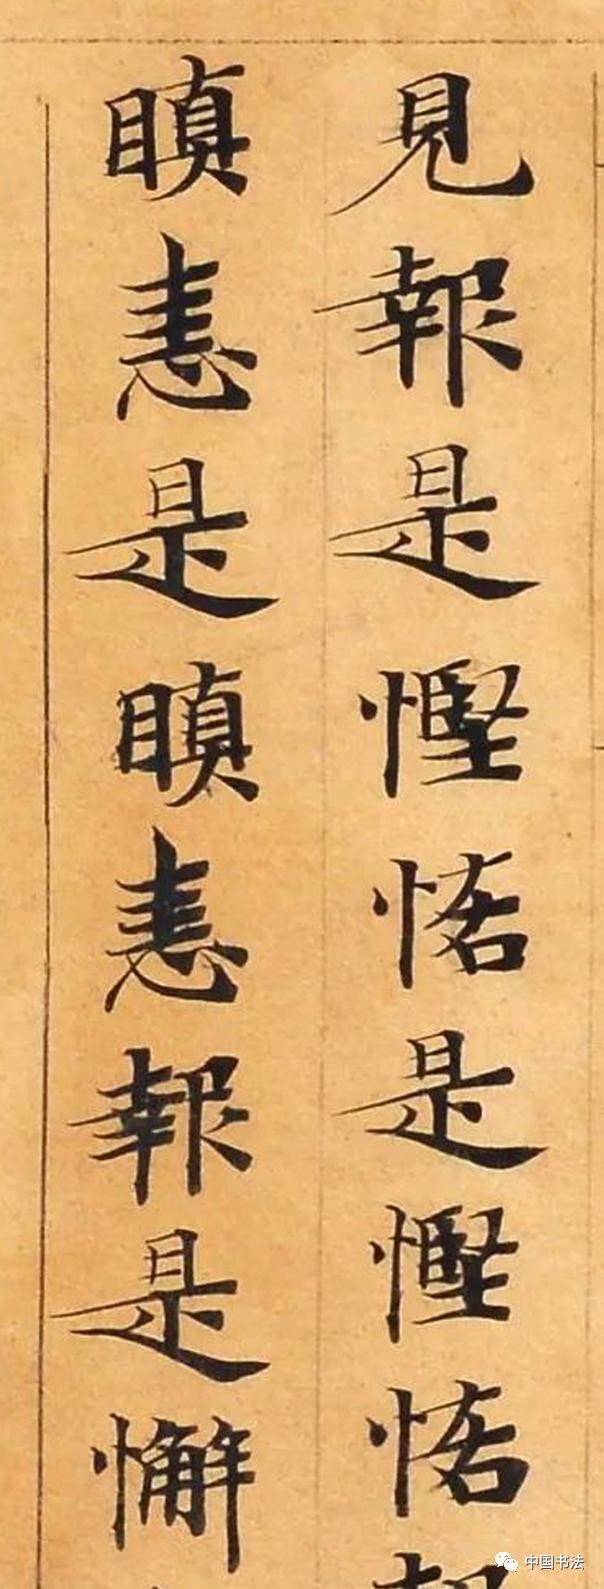 見報是慳悋是慳悋
瞋恚是瞋恚報是懈
中国书法